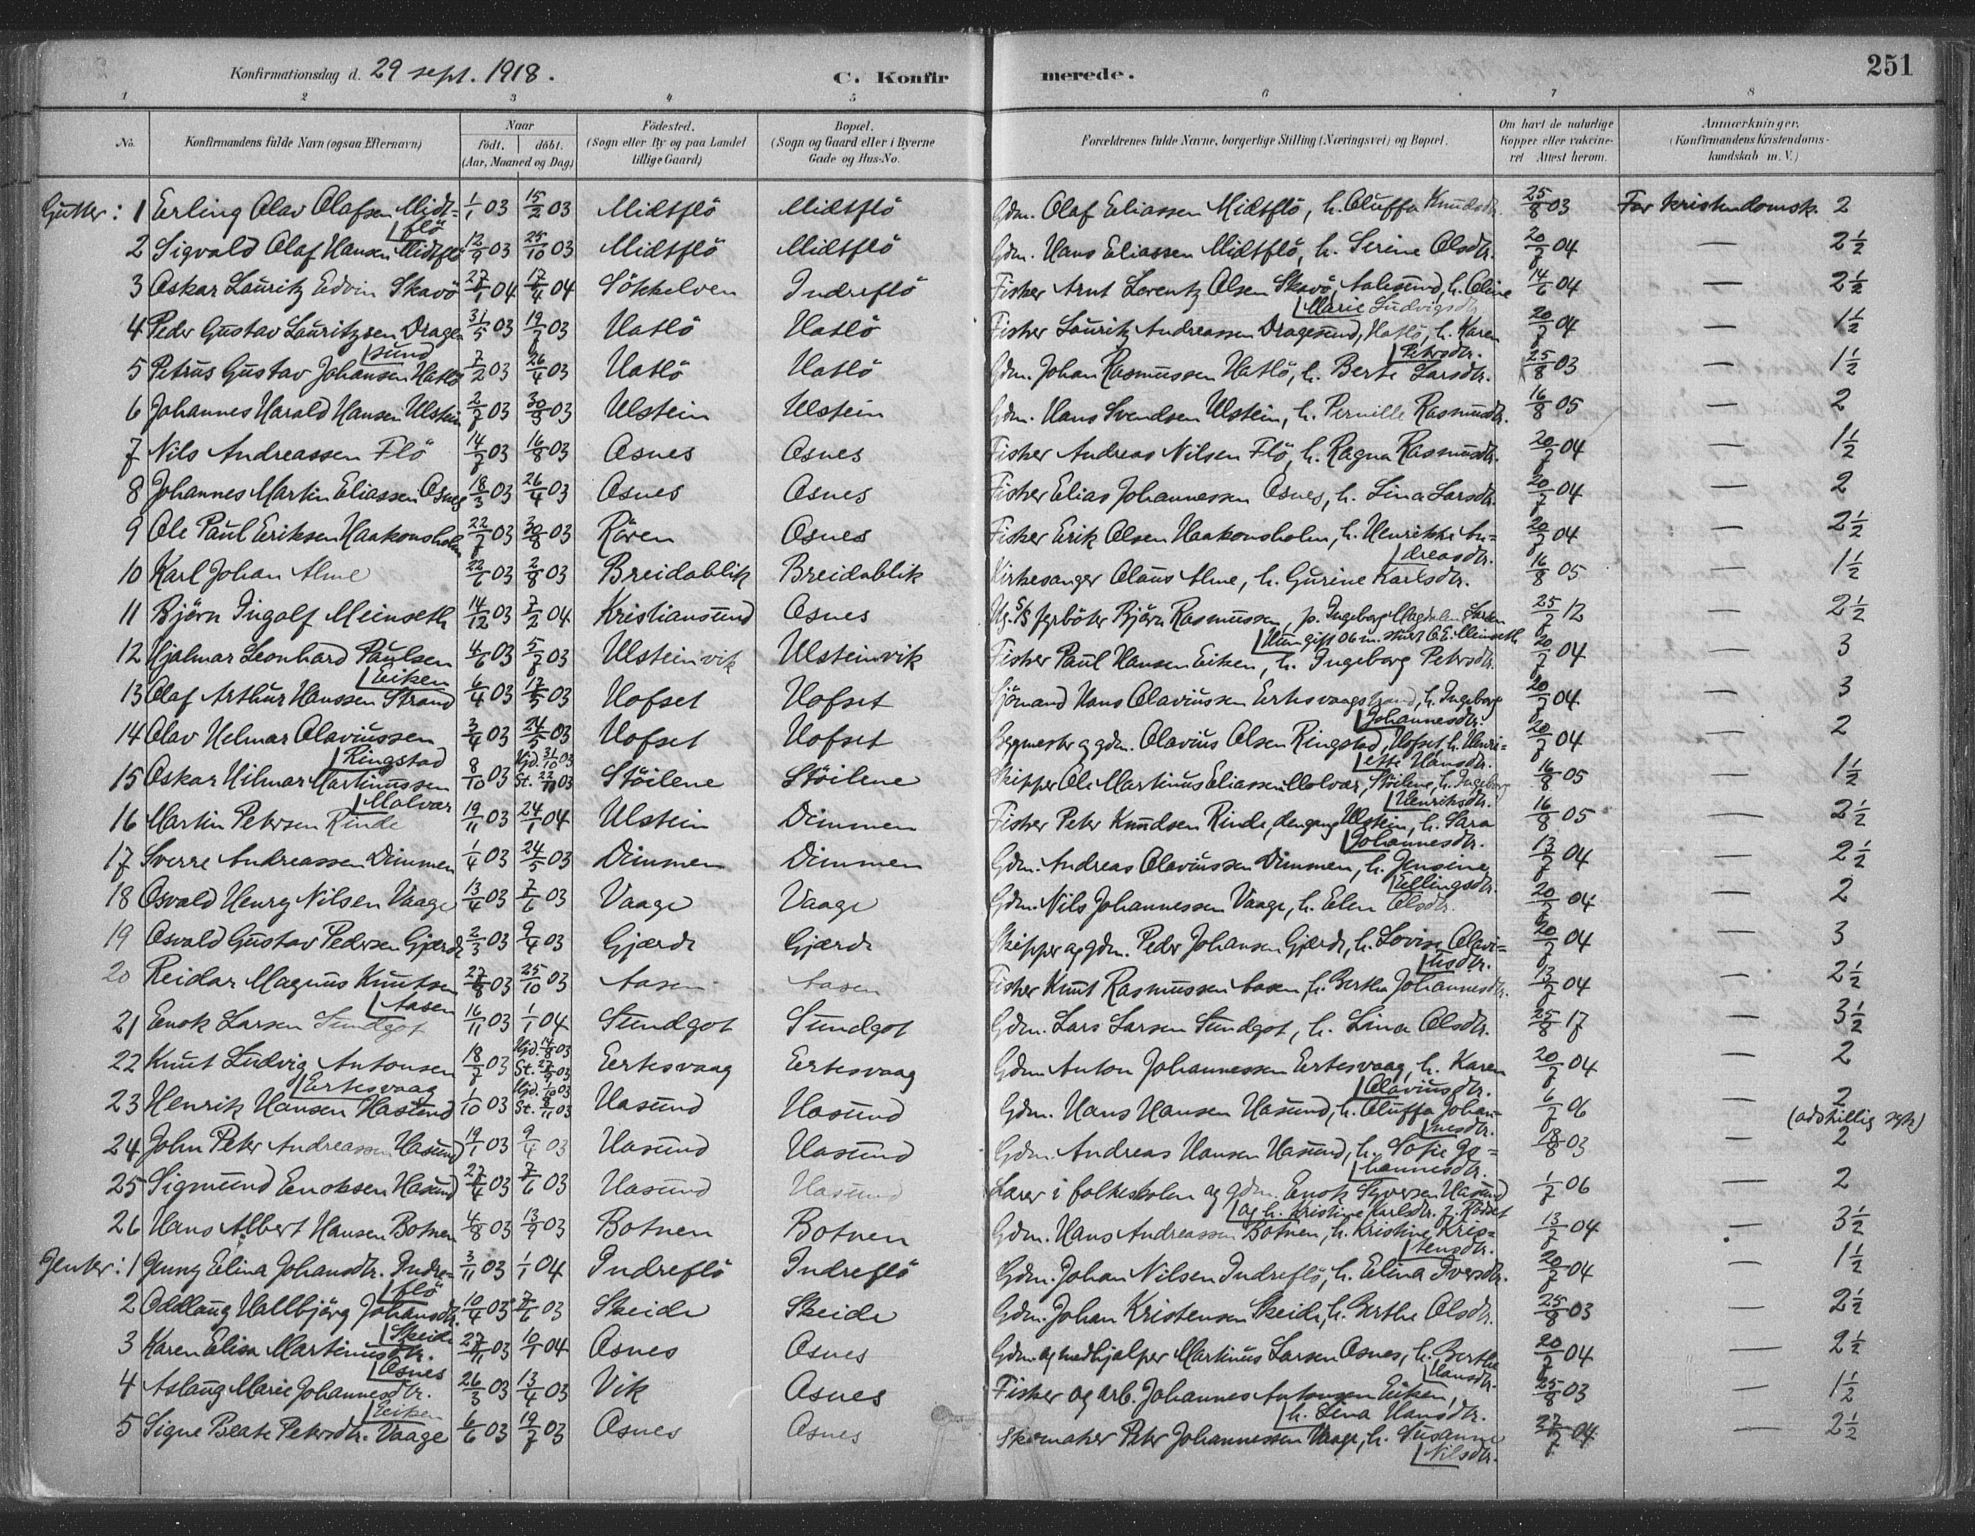 251
Konfirmationsdag d. 29 sept. 1918. C. Konfir merede.
1 2 3 4 5 6 7 8
No. Konfirmandens fulde Navn (ogsaa Efternavn) Naar født. døbt. (Aar, Maaned og Dag) Fødested. (Sogn eller By og paa Landet tillige Gaard) Bopæl. (Sogn og Gaard eller i Byerne Gade og Hus-No. Forældrenes fulde Navne, borgerlige Stilling (Næringsvei) og Bopæl. Om havt de naturlige Kopper eller vakcineret Attest herom. Anmærkninger. (Konfirmandens Kristendomskundskab m. V.)
Gutter: 1 Erling Olav Olafsen Midtflö 1/1 03 15/2 03 Midtflö Midtflö Gdm. Olaf Eliassen Midtflö, h. Oluffa Knudsdtr. 25/8 03 For kristendomsk. 2
2 Sigvald Olaf Hansen Midtflö 12/9 03 25/10 03 Midtflö Midtflö Gdm. Hans Eliassen Midtflö, h. Serine Olsdtr. 20/7 04 — 2½
3 Oskar Lauritz Edvin Skavö 27/1 04 17/4 04 Sökkelven Indreflö Fisker Arnt Lorentz Olsen Skavö, Aalesund, h. Oline Marie Ludvigsdtr. 14/6 04 — 2½
4 Peder Gustav Lauritzsen Dragesund 31/5 03 19/7 03 Hatlö Hatlö Fisker Lauritz Andreassen Dragesund, Hatlö, h. Karen Petersdtr. 20/7 04 — 1½
5 Petrus Gustav Johansen Hatlö 7/2 03 26/4 03 Hatlö Hatlö Gdm. Johan Rasmussen Hatlö, h. Berte Larsdtr. 25/8 03 — 1½
6 Johannes Harald Hansen Ulstein 2/7 03 30/8 03 Ulstein Ulstein Gdm. Hans Svendsen Ulstein, h. Pernille Rasmusdtr. 16/8 05 — 2
7 Nils Andreassen Flö 14/7 03 16/8 03 Osnes Osnes Fisker Andreas Nilsen Flö, h. Ragna Rasmusdtr. 20/7 04 — 1½
8 Johannes Martin Eliassen Osnes 18/3 03 26/4 03 Osnes Osnes Fisker Elias Johannessen Osnes, h. Lina Larsdtr. 20/7 04 — 2
9 Ole Paul Eriksen Haakonsholm 22/7 03 30/8 03 Rören Osnes Fisker Erik Olsen Haakonsholm, h. Henrikke Andreasdtr. 20/7 04 — 2½
10 Karl Johan Alme 22/6 03 2/8 03 Breidablik Breidablik Kirkesanger Olaus Alme, h. Gurine Karlsdtr. 16/8 05 — 1½
11 Björn Ingolf Meinseth 14/12 03 7/2 04 Kristiansund Osnes Ug. S/S fyrböter Björn Rasmussen, p. Ingeborg Magdalen Larsen Hun gift 06 m. O.E. Meinseth 25/7 12 — 2½
12 Hjalmar Leonhard Paulsen Eiken 4/6 03 5/7 03 Ulsteinvik Ulsteinvik Fisker Paul Hansen Eiken, h. Ingeborg Petersdtr. 20/7 04 — 3
13 Olaf Arthur Hanssen Strand 6/4 03 17/5 03 Hofset Hofset Sjömand Hans Olaviussen Eertesvaagstrand, h. Ingeborg Johannesdtr. 20/7 04 — 3
14 Olav Helmar Olaviussen Ringstad 3/4 03 24/5 03 Hofset Hofset Bygmester og gdm. Olavius Olsen Ringstad, Hofset, h. Henriette Hansdtr. 20/7 04 — 2
15 Oskar Hilmar Martinussen Molvær 8/10 03 Hjd. 31/10 03 St. 22/11 03 Stöilene Stöilene Skipper Ole Martinus Eliassen Molvær, Stöilene, h. Ingeborg Henriksdtr. 16/8 05 — 1½
16 Martin Petersen Rinde 19/11 03 24/1 04 Ulstein Dimmen Fisker Peter Knudsen Rinde, dengang Ulstein, h. Sara Johannesdtr. 16/8 05 — 2½
17 Sverre Andreassen Dimmen 1/4 03 24/5 03 Dimmen Dimmen Gdm. Andreas Olaviussen Dimmen, h. Jensine Ellingsdtr. 13/7 04 — 2½
18 Osvald Henry Nilsen Vaage 13/4 03 7/6 03 Vaage Vaage Gdm. Nils Johannessen Vaage, h. Elen Olsdtr. 20/7 04 — 2
19 Osvald Gustav Pedersen Gjærde 2/3 03 9/4 03 Gjærde Gjærde Skipper og gdm. Peder Johansen Gjærde, h. Lovise Olaviusdtr. 20/7 04 — 3
20 Reidar Magnus Knutsen Aasen 27/8 03 25/10 03 Aasen Aasen Fisker Knut Rasmussen Aasen, h. Berthe Johannesdtr. 13/7 04 — 2½
21 Enok Larsen Sundgot 16/11 03 1/1 04 Sundgot Sundgot Gdm. Lars Larsen Sundgot, h. Lina Olsdtr. 25/8 17 — 3½
22 Knut Ludvig Antonsen Eertesvaag 18/7 03 Hjd. 14/8 03 St. 27/9 03 Eertesvaag Eertesvaag Gdm Anton Johannessen Eertesvaag, h. Karen Olaviusdtr. 20/7 04 — 2
23 Henrik Hansen Hasund 1/10 03 Hjd. 1/10 03 St. 8/11 03 Hasund Hasund Gdm. Hans Hansen Hasund, h. Oluffa Johannesdtr. 6/7 06 — 2 (adskillig syk)
24 John Peter Andreassen Hasund 19/1 03 9/4 03 Hasund Hasund Gdm. Andreas Hansen Hasund, h. Sofie Johannesdtr. 18/8 03 — 2
25 Sigmund Enoksen Hasund 27/4 03 7/6 03 Hasund Hasund Lærer i folkeskolen og gdm. Enok Syversen Hasund og h. Kristine Karlsdtr. f. Rödset 1/7 06 — 2
26 Hans Albert Hansen Botnen 4/8 03 13/9 03 Botnen Botnen Gdm. Hans Andreassen Botnen, h. Kristine Kristensdtr. 13/7 04 — 3½
Jenter: 1 Gung Elina Johansdtr. Indreflö 3/11 03 1/1 04 Indreflö Indreflö Gdm. Johan Nilsen Indreflö, h. Elina Iversdtr. 20/7 04 — 1½
2 Oddlaug Hallbjörg Johansdtr. Skeide 10/4 03 7/6 03 Skeide Skeide Gdm. Johan Kristensen Skeide, h. Berthe Olsdtr. 25/8 03 — 2½
3 Karen Elisa Martinusdtr. Osnes 27/11 03 10/1 04 Osnes Osnes Gdm og medhjælper Martinus Larsen Osnes, h. Berthe Hansdtr. 20/7 04 — 2½
4 Aslaug Marie Johannesdtr. Eiken 26/3 03 13/4 03 Vik Osnes Fisker og arb. Johannes Antonsen Eiken, h. Lina Hansdtr. 25/8 03 — 1½
5 Signe Beate Petersdtr. Vaage 6/6 03 19/7 03 Osnes Osnes Skomaker Peter Johannessen Vaage, h. Susanne Nilsdtr. 27/7 04 — 2½